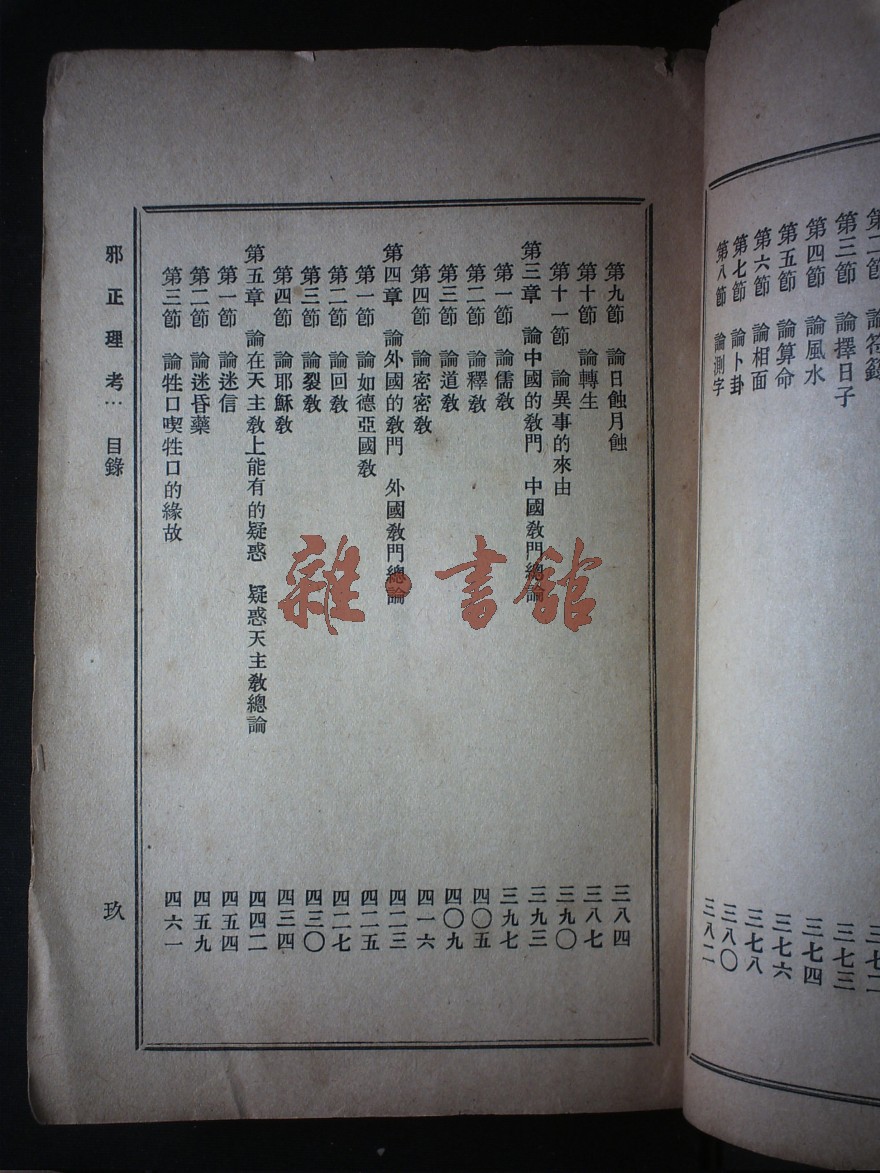 第二節 論符籙 三七二
第三節 論擇日子 三七三
第四節 論風水 三七四
第五節 論算命 三七六
第六節 論相面 三七八
第七節 論卜卦 三八〇
第八節 論測字 三八二
第九節 論日蝕月蝕 三八四
第十節 論轉生 三八七
第十一節 論異事的來由 三九〇
第三章 論中國的教門 中國教門總論 三九三
第一節 論儒教 三九七
第二節 論釋教 四〇五
第三節 論道教 四〇九
第四節 論密密教 四一六
第四章 論外國的教門 外國教門總論 四二三
第一節 論如德亞國教 四二五
第二節 論回教 四二七
第三節 論裂教 四三〇
第四節 論耶穌教 四三四
第五章 論在天主教上能有的疑惑 疑惑天主教總論 四四二
第一節 論迷信 四五四
第二節 論迷昏藥 四五九
第三節 論牲口喫牲口的緣故 四六一
邪正理考… 目錄 玖
雜·書館